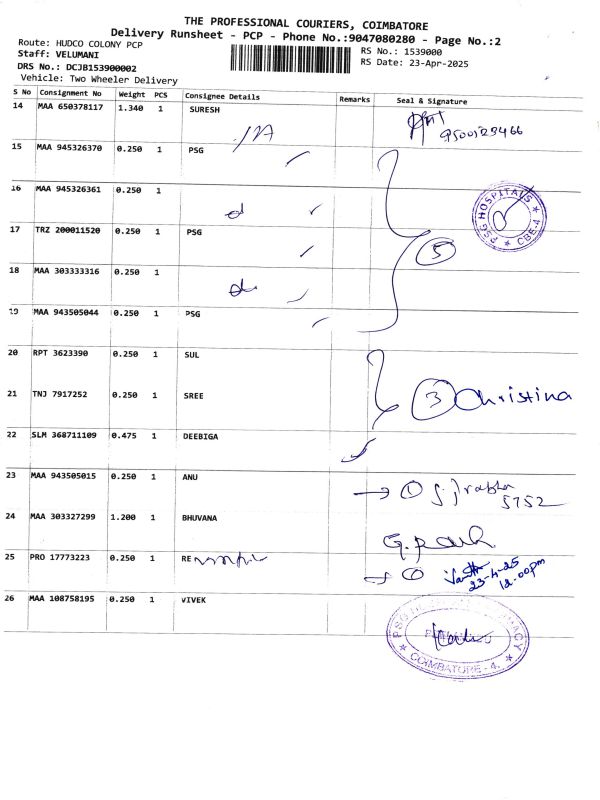 THE PROFESSIONAL COURIERS, COIMBATORE
Delivery Runsheet - PCP - Phone No.:9047080280 - Page No.:2
Route: HUDCO COLONY PCP
RS No.: 1539000
Staff: VELUMANI
RS Date: 23-Apr-2025
DRS No.: DCJB153900002
Vehicle: Two Wheeler Delivery
S No Consignment No Weight PCS Consignee Details Remarks Seal & Signature
14 MAA 650378117 1.340 1 SURESH
15 MAA 945326370 0.250 1 PSG
16 MAA 945326361 0.250 1
PSG HOSPITALS ★ CBE-4 ★
17 TRZ 200011520 0.250 1 PSG
5
18 MAA 303333316 0.250 1
19 MAA 943505044 0.250 1 PSG
20 RPT 3623390 0.250 1 SUL
21 TNJ 7917252 0.250 1 SREE 3 Christina
22 SLM 368711109 0.475 1 DEEBIGA
23 MAA 943505015 0.250 1 ANU
→ 1
5752
24 MAA 303327299 1.200 1 BHUVANA
25 PRO 17773223 0.250 1 RE
23-4-25
12.00pm
26 MAA 108758195 0.250 1 VIVEK
COIMBATORE - 4.